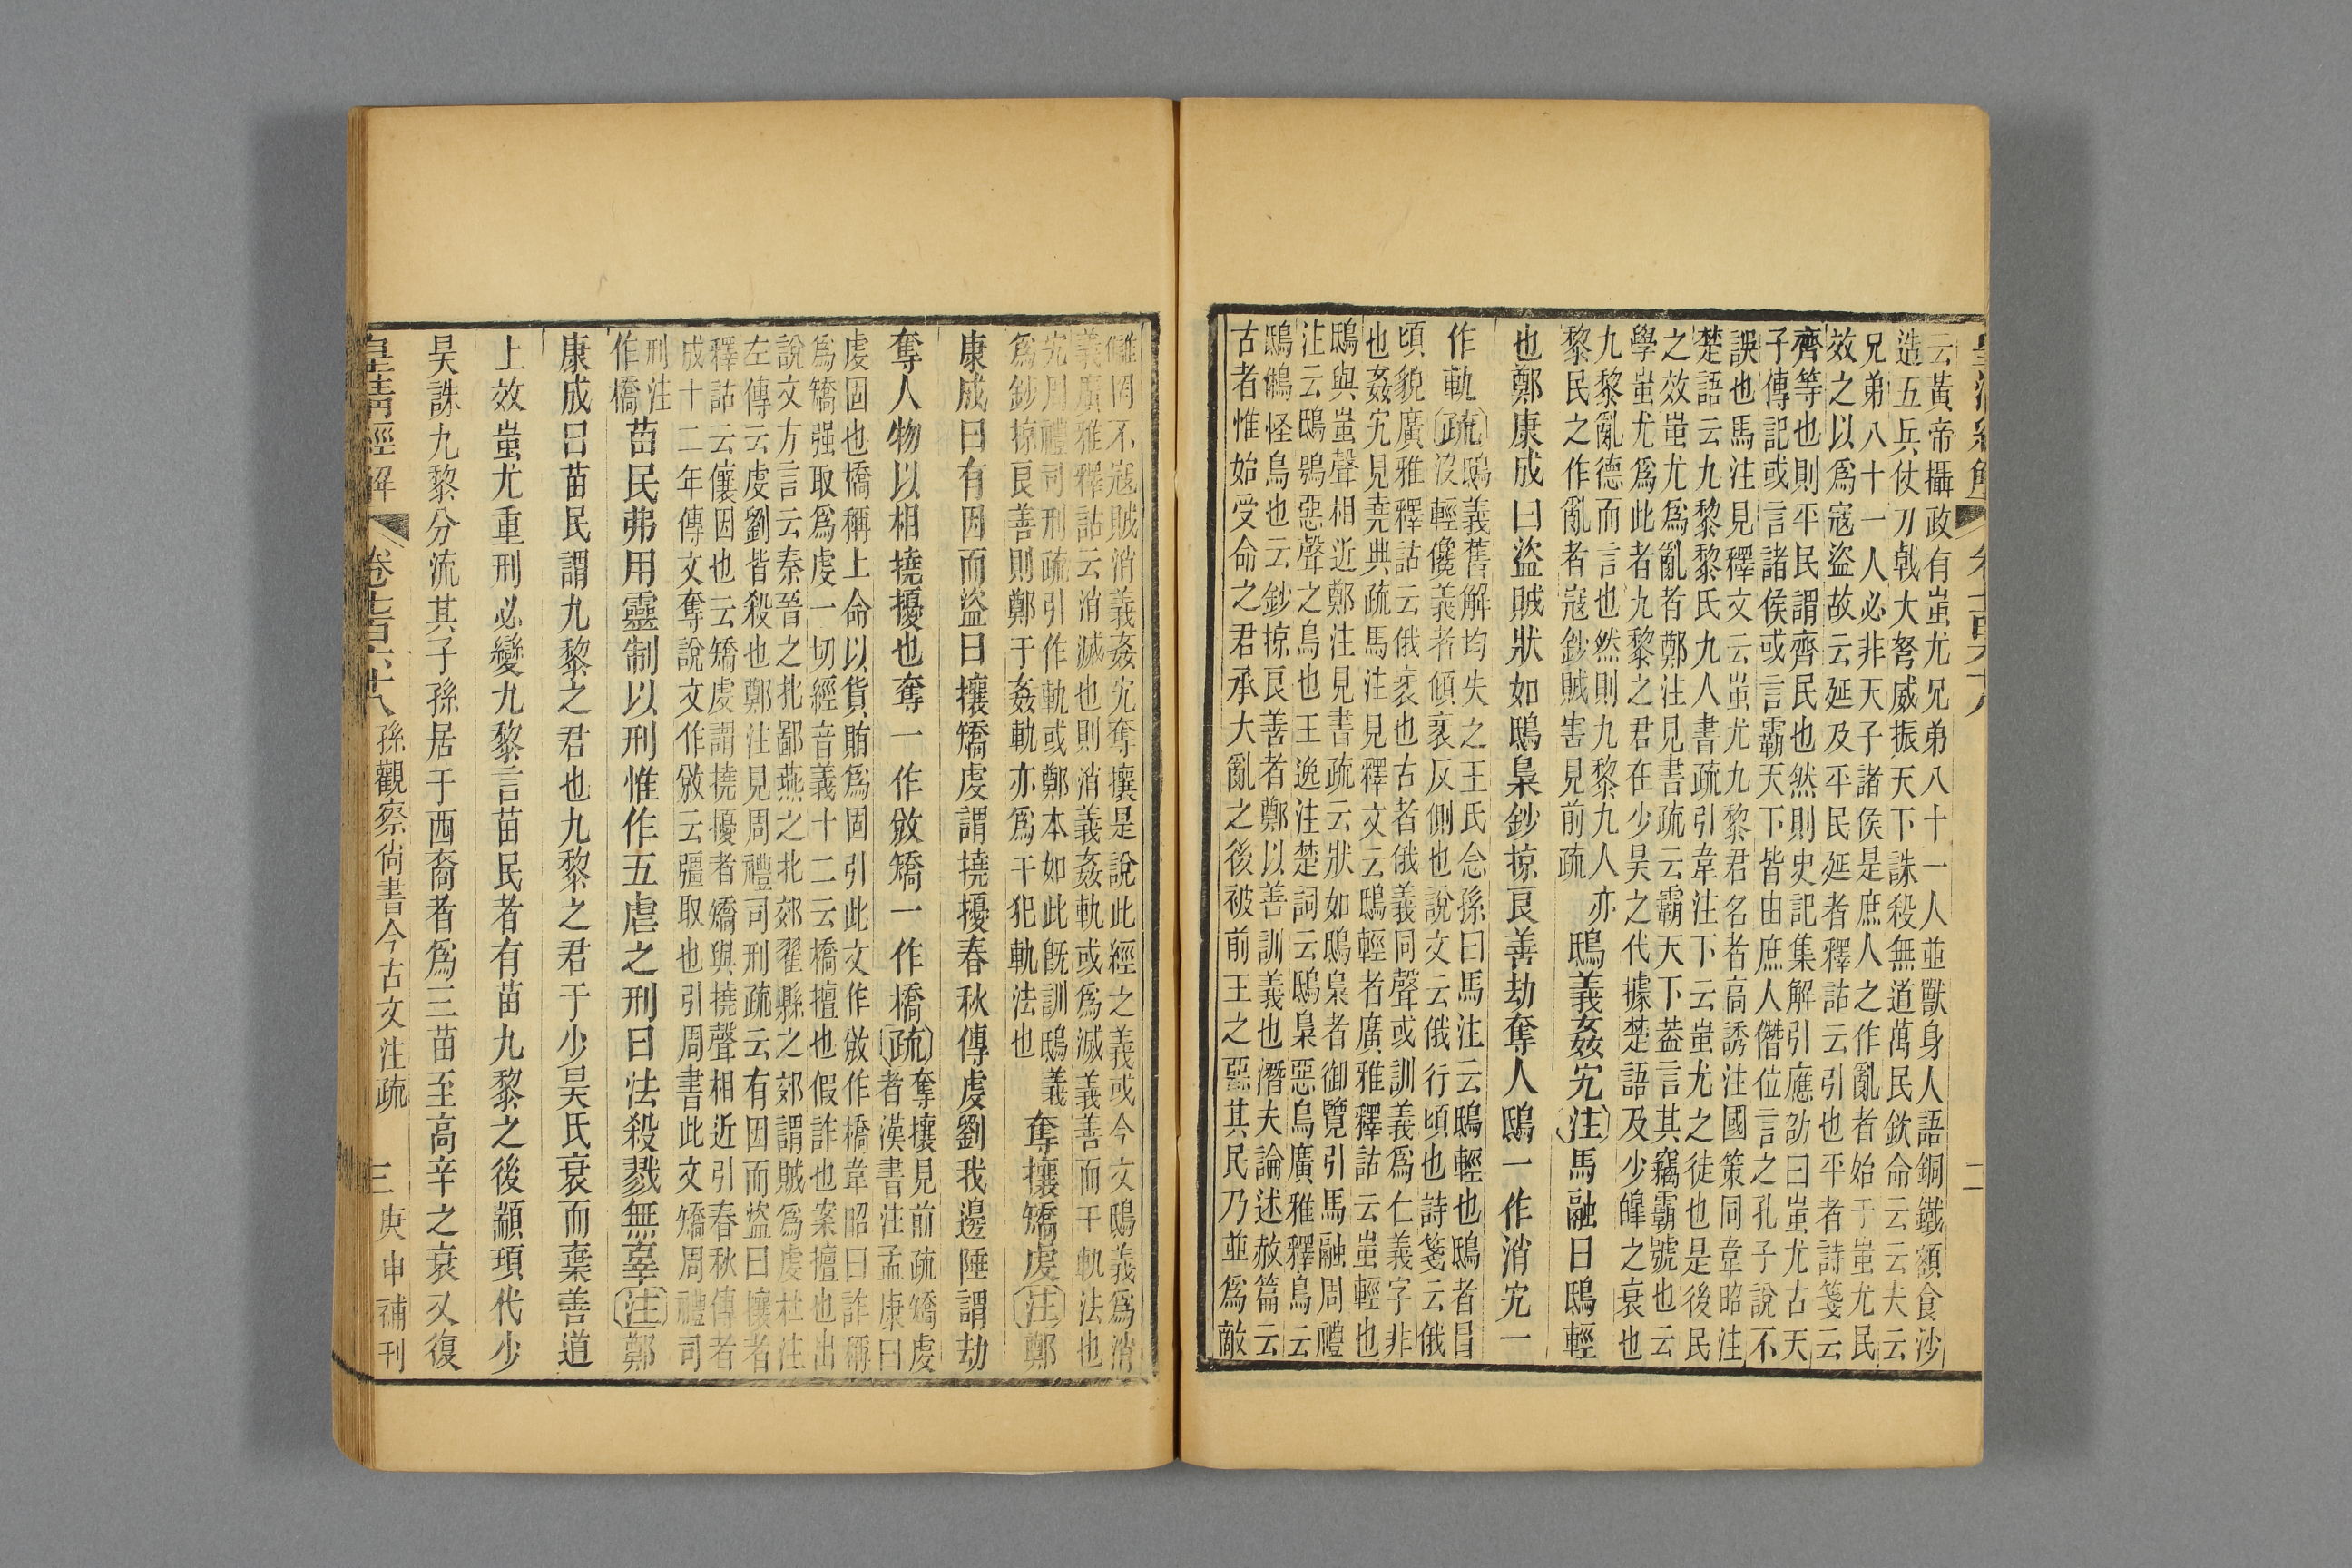 云黃帝攝政有蚩尤兄弟八十一人並獸身人語銅鐵額食沙
造五兵仗刀戟大弩威振天下誅殺無道萬民欽命云云夫云
兄弟八十一人必非天子諸侯是庶人之作亂者始于蚩尤民
效之以爲寇盜故云延及平民延者釋詁云引也平者詩箋云
齊等也則平民謂齊民也然則史記集解引應劭曰蚩尤古天
子傳記或言諸侯或言霸天下皆由庶人僭位言之孔子說不
誤也馬注見釋文云蚩尤九黎君名者高誘注國策同韋昭注
楚語云九黎黎氏九人書疏引韋注下云蚩尤之徒也是後民
之效蚩尤爲亂者鄭注見書疏云霸天下葢言其竊霸號也云
學蚩尤爲此者九黎之君在少昊之代據楚語及少皞之衰也
九黎亂德而言也然則九黎九人亦
黎民之作亂者寇鈔賊害見前疏
鴟義姦宄注馬融曰鴟輕
也鄭康成曰盜賊狀如鴟梟鈔掠良善劫奪人鴟一作消宄一
作軌疏
鴟義舊解均失之王氏念孫曰馬注云鴟輕也鴟者冒
沒輕儳義者傾衺反側也說文云俄行頃也詩箋云俄
頃貌廣雅釋詁云俄衺也古者俄義同聲或訓義爲仁義字非
也姦宄見堯典疏馬注見釋文云鴟輕者廣雅釋詁云蚩輕也
鴟與蚩聲相近鄭注見書疏云狀如鴟梟者御覽引馬融周禮
注云鴟鴞惡聲之鳥也王逸注楚詞云鴟梟惡鳥廣雅釋鳥云
鴟鵂怪鳥也云鈔掠良善者鄭以善訓義也潛夫論述赦篇云
古者惟始受命之君承大亂之後被前王之惡其民乃並爲敵
讎罔不寇賊消義姦宄奪攘是說此經之義或今文鴟義爲消
義廣雅釋詁云消滅也則消義姦軌或爲滅義善而干軌法也
宄周禮司刑疏引作軌或鄭本如此旣訓鴟義
爲鈔掠良善則鄭于姦軌亦爲干犯軌法也
奪攘矯虔注鄭
康成曰有因而盜曰攘矯虔謂撓擾春秋傳虔劉我邊陲謂劫
奪人物以相撓擾也奪一作敓矯一作橋疏
奪攘見前疏矯虔
者漢書注孟康曰
虔固也橋稱上命以貨賄爲固引此文作敓作橋韋昭曰詐稱
爲矯强取爲虔一切經音義十二云橋擅也假詐也案擅也出
說文方言云秦晉之北鄙燕之北郊翟縣之郊謂賊爲虔杜注
左傳云虔劉皆殺也鄭注見周禮司刑疏云有因而盜曰攘者
釋詁云儴因也云矯虔謂撓擾者矯與撓聲相近引春秋傳者
成十二年傳文奪說文作敓云彊取也引周書此文矯周禮司
刑注
作橋
苗民弗用靈制以刑惟作五虐之刑曰法殺戮無辜注鄭
康成曰苗民謂九黎之君也九黎之君于少昊氏衰而棄善道
上效蚩尤重刑必變九黎言苗民者有苗九黎之後顓頊代少
昊誅九黎分流其子孫居于西裔者爲三苗至高辛之衰又復
皇清經解 卷七百六十八 孫觀察尙書今古文注疏 三 庚申補刊